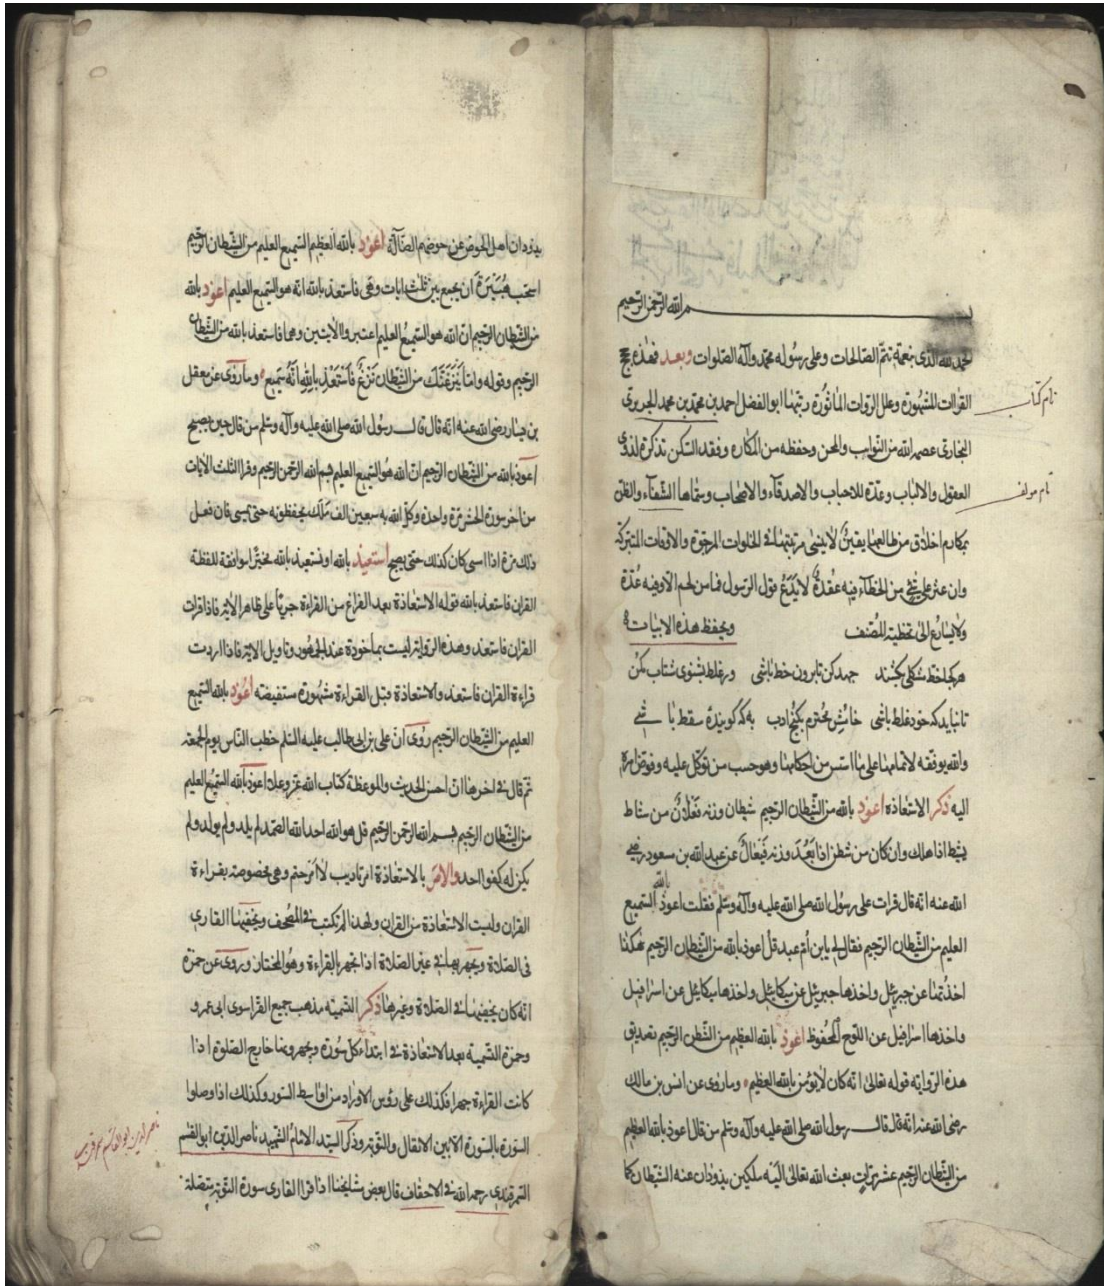 بسم الله الرحمن الرحيم
الحمد لله الذى بنعمته تتم الصالحات وعلى رسوله محمد وآله الصلوات وبعد فهذه حجج
القراات المشهورة وعلل الروات الماثورة رتبها ابو الفضل احمد بن محمد بن محمد الحريرى
نام كتاب
البخارى عصمه الله من النوايب والمحن وحفظه من المكاره وفقد السكن تذكرة لذوى
العقول والالباب وعدة للاحباب والاصدقآء والاصحاب وسماها الشفآء والظن
نام مولف
بمكارم اخلاق من طالعها يقين لاينسى مرتبها فى الخلوات المرجوة والاوقات المتبركة
وان عثر على شئ من الخطآء فيه عقدة لا يدع قول الرسول فما من لحم الا وفيه غدة
ولايسارع الى تخطية المصنف ويحفظ هذه الابيات
هركجا لفظ مشكلى بينند جهد كن تا برون خط باشى ور غلط بشنوى شتاب مكن
تا نبايد كه خود غلط باشى خامش محترم بكنج ادب به كه كوينده سقط باشے
والله يوفقه لاتمامها على ما اسس من احكامها وهو حسب من توكل عليه وفوض امره
اليه ذكر الاستعاذة اعوذ بالله من الشيطان الرجيم شيطان وزنه فعلان من شاط
يشيط اذا هلك وان كان من شطن اذا بعد وزنه فيعال عن عبد الله بن سعود رضى
الله عنه انه قال قرات على رسول الله صلى الله عليه وآله وسلم فقلت اعوذ بالله السميع
العليم من الشيطان الرجيم فقال لى يا بن أم عبد قل اعوذ بالله من الشيطان الرجيم هكذا
اخذتها عن جبريل واخذها جبريل عن ميكايل واخذها ميكايل عن اسرافيل
واخذها اسرافيل عن اللوح المحفوظ اعوذ بالله العظيم من الشيطن الرجيم تصديق
هذه الرواية قوله تعالى انه كان لايؤمن بالله العظيم وماروى عن انس بن مالك
رضى الله عنه انه قال قال رسول الله صلى الله عليه وآله وسلم من قال اعوذ بالله العظيم
من الشيطان الرجيم عشر مرات بعث الله تعالى اليه ملكين يذودان عنه الشيطان كما
يذودان اهل الحوض عن حوضهم الضآلة اعوذ بالله العظيم السميع العليم من الشيطان الرجيم
استحب هبيرة ان يجمع بين ثلث ايات وهى فاستعذ بالله انه هو السميع العليم اعوذ بالله
من الشيطان الرجيم ان الله هو السميع العليم اعتبروا الايتين وهما فاستعذ بالله من الشيطان
الرجيم وقوله واما ينزغنك من الشيطان نزغ فاستعذ بالله انه سميع وماروى عن معقل
بن يسار رضى الله عنه انه قال قال رسول الله صلى الله عليه وآله وسلم من قال حين يصبح
اعوذ بالله من الشيطان الرجيم ان الله هو السميع العليم بسم الله الرحمن الرحيم وقرا الثلث الايات
من اخر سورة الحشر مرة واحدة وكل الله به سبعين الف ملك يحفظونه حتى يمسى فان فعل
ذلك مرة اذا امسى كان كذلك حتى يصبح استعيذ بالله او نستعيذ بالله تخيرا موافقة للفظة
القران فاستعذ بالله قوله الاستعاذة بعد الفراغ من القراءة جريا على ظاهر الاية فاذا قرات
القران فاستعذ وهذه الرواية ليست بماخوذة عند الجمهور وتاويل الاية فاذا اردت
قراءة القران فاستعذ والاستعاذة قبل القراءة مشهورة مستفيضة اعوذ بالله السميع
العليم من الشيطان الرجيم روى ان على بن ابى طالب عليه السلم خطب الناس يوم الجمعة
ثم قال فى اخرها ان احسن الحديث والموعظة كتاب الله عز وعلا اعوذ بالله السميع العليم
من الشيطان الرجيم بسم الله الرحمن الرحيم قل هو الله احد الله الصمد لم يلد ولم يولد ولم
يكن له كفوا احد والامر بالاستعاذة امر تاديب لا امر حتم وهى مخصوصة بقراءة
القران وليست الاستعاذة من القران ولهذا لم تكتب فى المصحف ويخفيها القارى
فى الصلاة ويجهر بها فى غير الصلاة اذا جهر بالقراءة وهو المختار وروى عن حمزة
انه كان يخفيها فى الصلاة وغيرها ذكر التسمية مذهب جميع القرا سوى ابى عمرو
وحمزة التسمية بعد الاستعاذة فى ابتداء كل سورة ويجهر بها خارج الصلوة اذا
كانت القراءة جهرا فكذلك على رؤس الاوراد من اقاسط السور وكذلك اذا وصلوا
السورة بالسورة الا بين الانفال والتوبة وذكر السيد الامام الشهيد ناصر الدين ابو القسم
ناصر الدين ابو القاسم سمرقندى
السمرقندى رحمه الله فى الاحقاف قال بعض مشايخنا اذا قرا القارى سورة التوبة متصلة